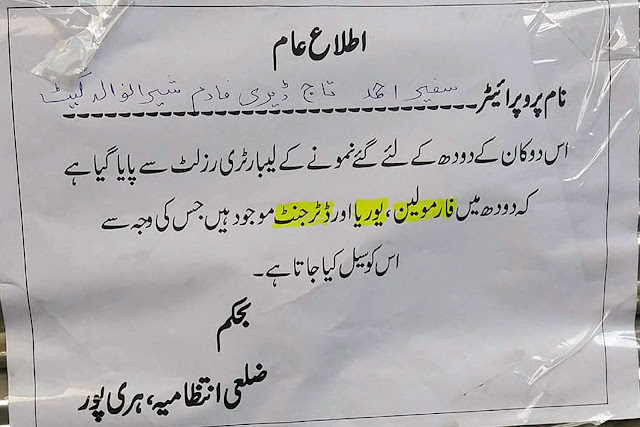 اطلاع عام
نام پروپرائیٹر سفیر احمد تاج ڈیری فارم شیرانوالہ گیٹ
اس دوکان کے دودھ کے لئے گئے نمونے کے لیبارٹری رزلٹ سے پایا گیا ہے
کہ دودھ میں فارمولین، یوریا اور ڈٹرجنٹ موجود ہیں جس کی وجہ سے
اس کو سیل کیا جاتا ہے۔
بحکم
ضلعی انتظامیہ، ہری پور